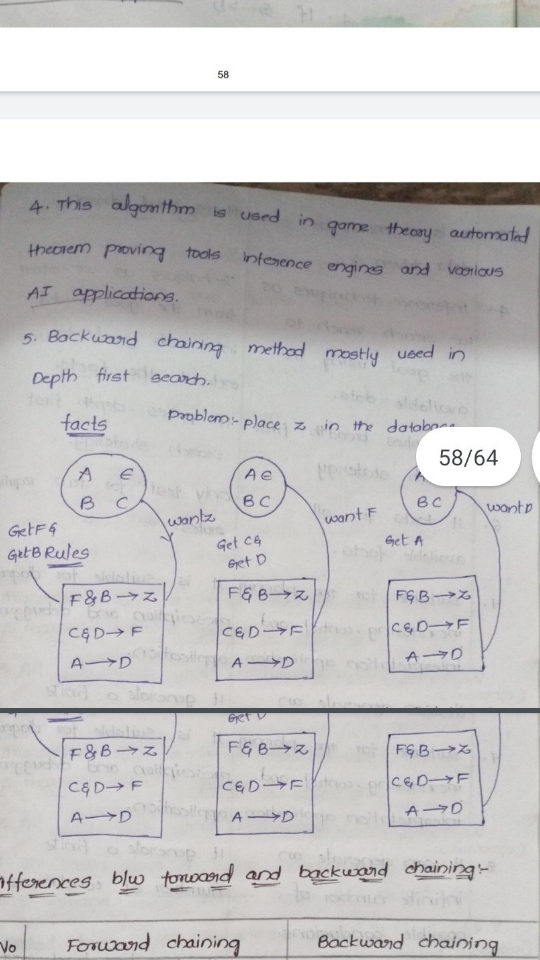 58
4. This algorithm is used in game theory automated
theorem proving tools inference engines and various
AI applications.
5. Backward chaining method mostly used in
Depth first search.
facts Problem:- place z in the
58/64
A E
B C
A E
B C
B C
want z
want F
want D
Get F &
Get B Rules
Get C &
Get D
Get A
F & B → Z
C & D → F
A → D
F & B → Z
C & D → F
A → D
F & B → Z
C & D → F
A → D
F & B → Z
C & D → F
A → D
F & B → Z
C & D → F
A → D
F & B → Z
C & D → F
A → D
fferences b/w forward and backward chaining:-
No Forward chaining Backward chaining